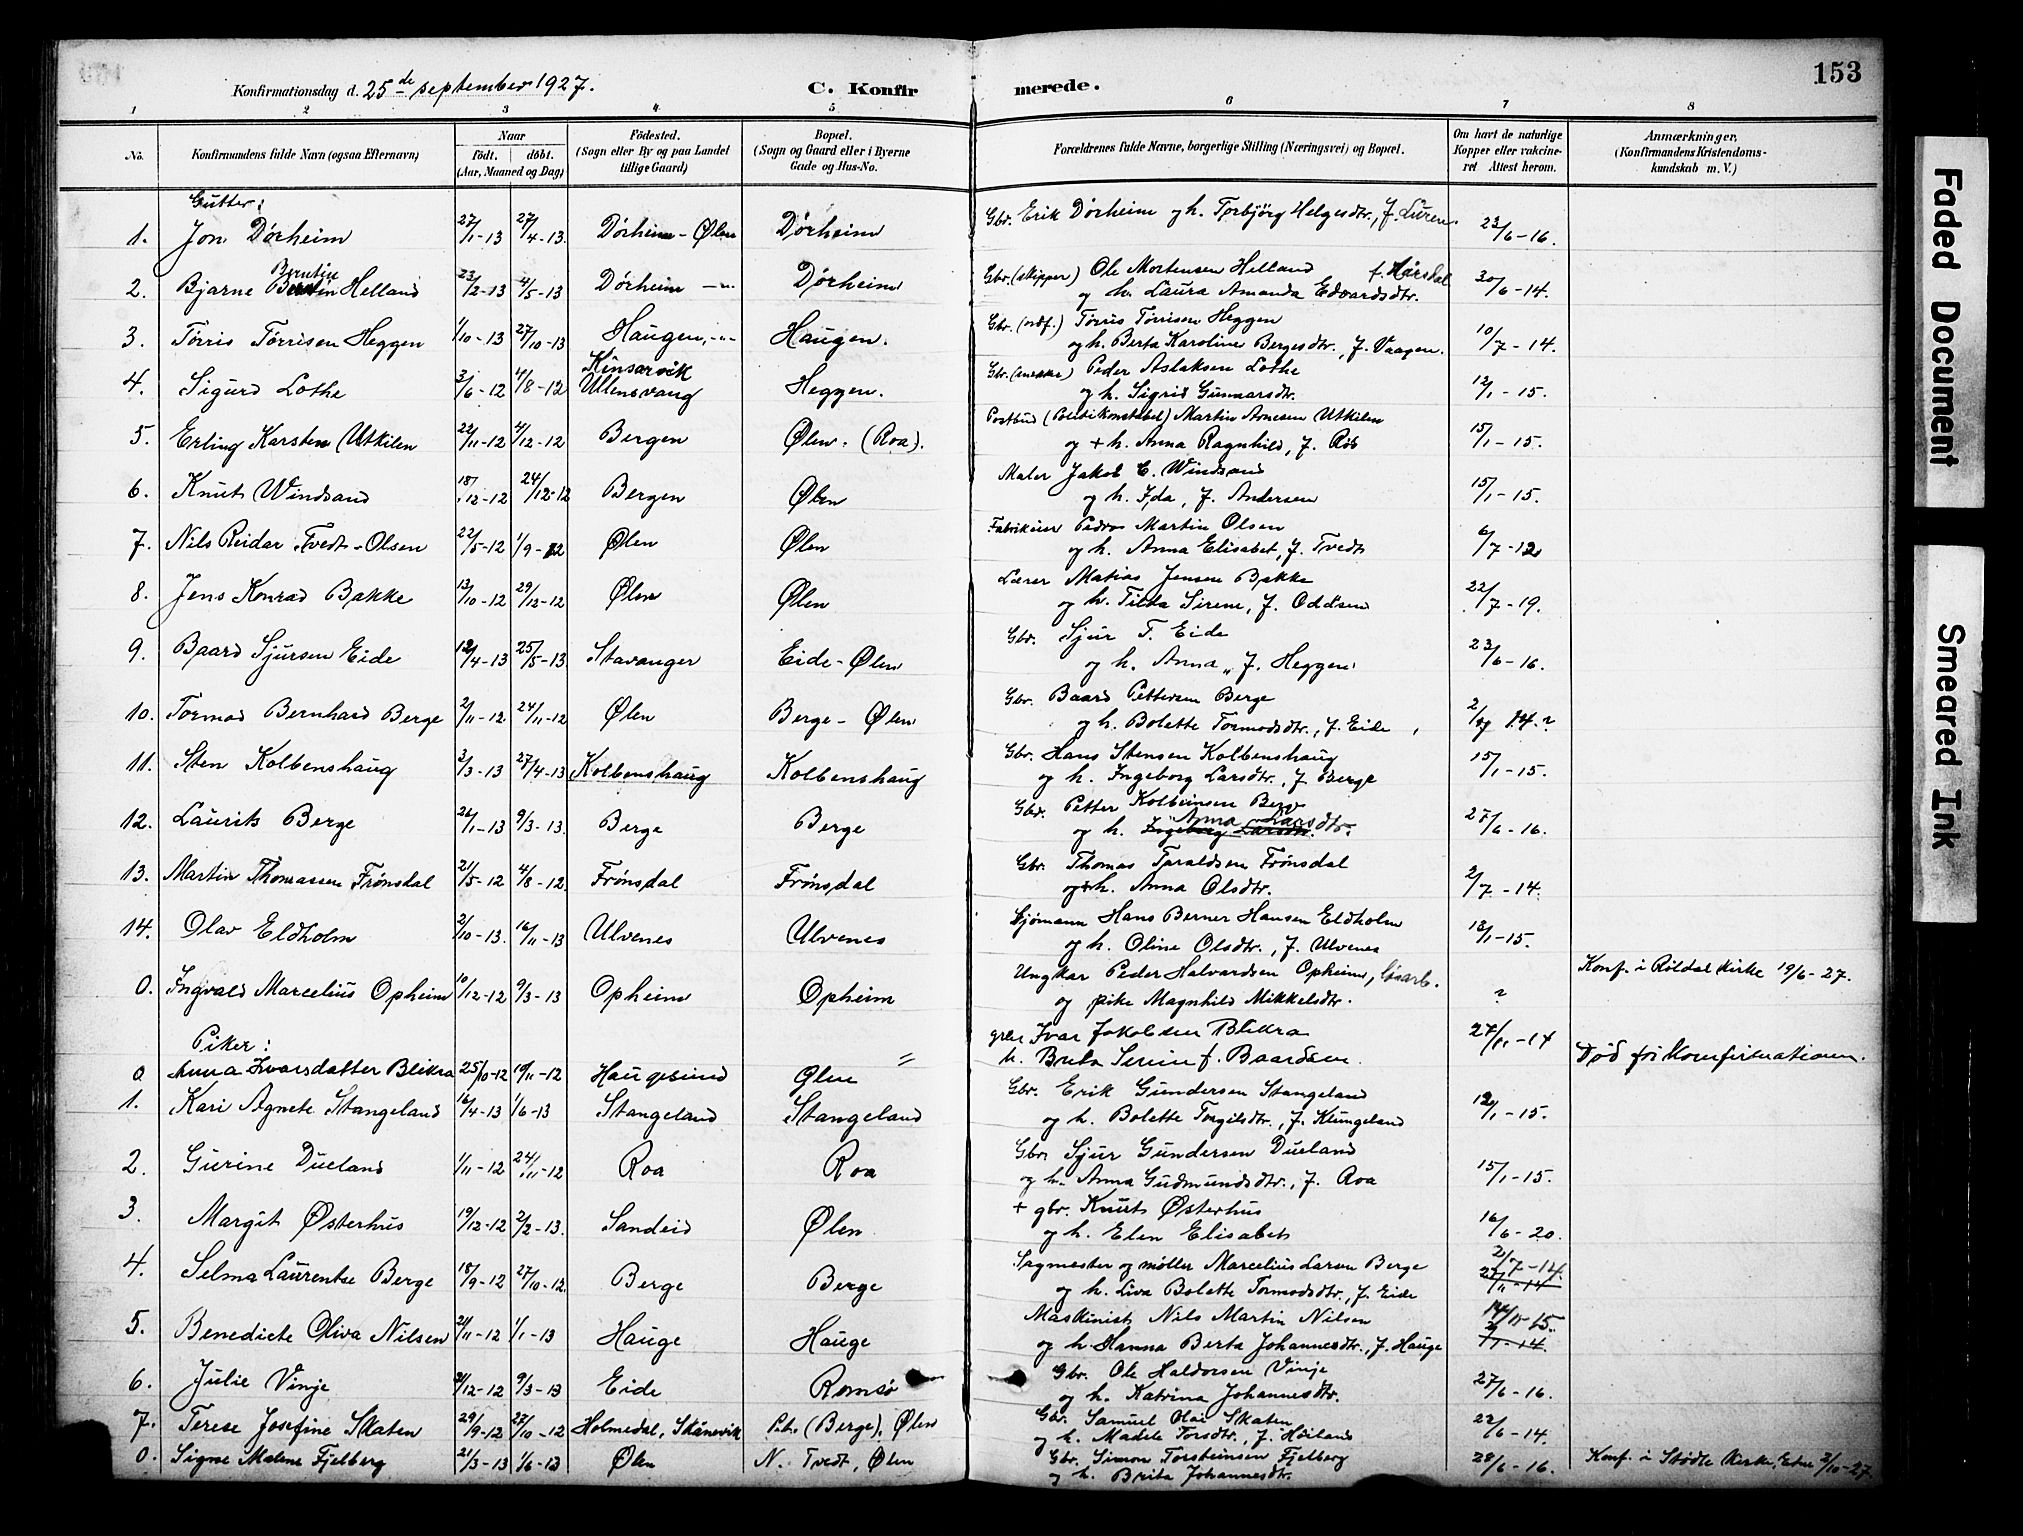 153
Konfirmationsdag d. 25de september 1927.
C. Konfirmerede.
1 2 3 4 5 6 7 8
No.
Konfirmandens fulde Navn (ogsaa Efternavn)
Naar
født. døbt.
(Aar, Maaned og Dag)
Fødested.
(Sogn eller By og paa Landet
tillige Gaard)
Bopæl.
(Sogn og Gaard eller i Byerne
Gade og Hus-No.
Forældrenes fulde Navne, borgerlige Stilling (Næringsvei) og Bopæl.
Om havt de naturlige
Kopper eller vakcine-
ret Attest herom.
Anmærkninger,
(Konfirmandens Kristendoms-
kundskab m. V.)
Gutter:
1. Jon Dørheim 27/1-13 27/4-13. Dørheim - Ølen Dørheim Gbr. Erik Dørheim og h. Torbjörg Helgesdtr., f. Luren. 23/6-16.
2. Bjarne Berntin Helland 23/2-13 4/5-13 Dørheim -"- Dørheim Gbr. (skipper) Ole Mortensen Helland f. Hårsdal
og h. Laura Amanda Edvardsdtr. 30/6-14.
3. Tørris Tørrisen Heggen 1/10-13 27/10-13 Haugen, -"- Haugen. Gbr. (ordf.) Tørris Tørrisen Heggen
og h. Berta Karoline Bergesdtr., f. Vaagen. 10/7-14.
4. Sigurd Lothe 3/6-12 4/8-12 Kinsarvik
Ullensvang Heggen. Gbr. Peder Aslaksen Lothe
og h. Sigrid Gunnarsdtr. 12/1-15.
5. Erling Karsten Utkilen 22/11-12 4/12-12 Bergen Ølen. (Roa). Postbud (Politikonstabel) Martin Arnesen Utkilen
og + h. Anna Ragnhild, f. Rød 15/1-15.
6. Knut Windsand 18/12-12 24/12-12 Bergen Ølen Maler Jakob C. Windsand
og h. Ida, f. Andersen 15/1-15.
7. Nils Reidar Tvedt-Olsen 22/5-12 1/9-12 Ølen Ølen Fabrikeier Peder Martin Olsen
og h. Anna Elisabet, f. Tvedt 6/7-12
8. Jens Konrad Bakke 13/10-12 29/12-12 Ølen Ølen Lærer Matias Jensen Bakke
og h. Tilda Sirene, f. Oddsen 22/7-19.
9. Baard Sjursen Eide 12/4-13 25/5-13. Stavanger Eide-Ølen Gbr. Sjur T. Eide
og h. Anna, f. Heggen 23/6-16.
10. Tormod Bernhard Berge 2/11-12 24/11-12 Ølen Berge-Ølen Gbr. Baard Pettersen Berge
og h. Bolette Tormodsdtr., f. Eide 2/7 14.?
11. Sten Kolbenshaug 3/3-13 27/4-13 Kolbenshaug Kolbenshaug Gbr. Hans Stensen Kolbenshaug
og h. Ingeborg Larsdtr., f. Berge 15/1-15.
12. Laurits Berge 26/1-13 9/3-13. Berge Berge Gbr. Petter Kolbeinsen Berge
og h. Ingeborg Larsdtr. Anna Larsdtr. 27/6-16.
13. Martin Thomassen Frønsdal 21/5-12 4/8-12. Frønsdal Frønsdal Gbr. Thomas Taraldsen Frønsdal
og h. Anna Olsdtr. 2/7-14.
14. Olav Eldholm 2/10-13. 16/11-13 Ulvenes Ulvenes Sjømann Hans Berner Hansen Eldholm
og h. Oline Olsdtr., f. Ulvenes 12/1-15.
0. Ingvald Marcelius Opheim 10/12-12 9/3-13 Opheim Opheim Ungkar Peder Halvardsen Opheim,
og pike Magnhild Mikkelsdtr. ? Konf. i Røldal kirke 19/6-27.
Piker:
0 Anna Ivarsdatter Blikra 25/10-12 10/11-12 Haugesund Ølen gbr Ivar Jakobsen Blikra
h. Berta Serine f. Baardsen. 27/11-14 Død før Konfirmationen.
1. Kari Agnete Stangeland 16/4-13 1/6-13 Stangeland Stangeland Gbr. Erik Gundersen Stangeland
og h. Bolette Torgilsdtr., f. Klungeland 12/1-15.
2. Gurine Dueland 1/11-12 24/11-12 Roa Roa Gbr Sjur Gundersen Dueland
og h. Anna Gudmundsdtr., f. Roa 15/1-15.
3. Margit Østerhus 19/12-12 2/2-13. Sandeid Ølen + gbr. Knut Østerhus
og h. Elen Elisabet 16/6-20.
4. Selma Laurentse Berge 18/9-12 27/10-12. Berge Berge Sagmester og møller Marcelius Larsen Berge
og h. Liva Bolette Tormodsdtr., f. Eide 2/7-14.
5. Benedicte Oliva Nilsen 21/11-12 1/1-13 Hauge Hauge Maskinist Nils Martin Nilsen
og h. Hanna Berta Johannesdtr., f. Hauge
6. Julie Vinje 21/12-12 9/3-13 Eide Romsø Gbr. Ole Haldorsen Vinje
og h. Katrina Johannesdtr. 27/6-16.
7. Terese Josefine Skaten 29/9-12 27/10-12 Holmedal, Skånevik (Berge), Ølen Gbr. Samuel Olai Skaten
og h. Madele Torsdtr., f. Høiland 22/6-14.
0. Signe Malene Fjelberg 21/3-13 1/6-13 Ølen N. Tvedt, Ølen Gbr. Simon Torsteinsen Fjelberg
og h. Brita Johannesdtr. 28/6-16. Konf. i Stødle kirke, Etne 2/10-27.
Faded Document
Smeared Ink